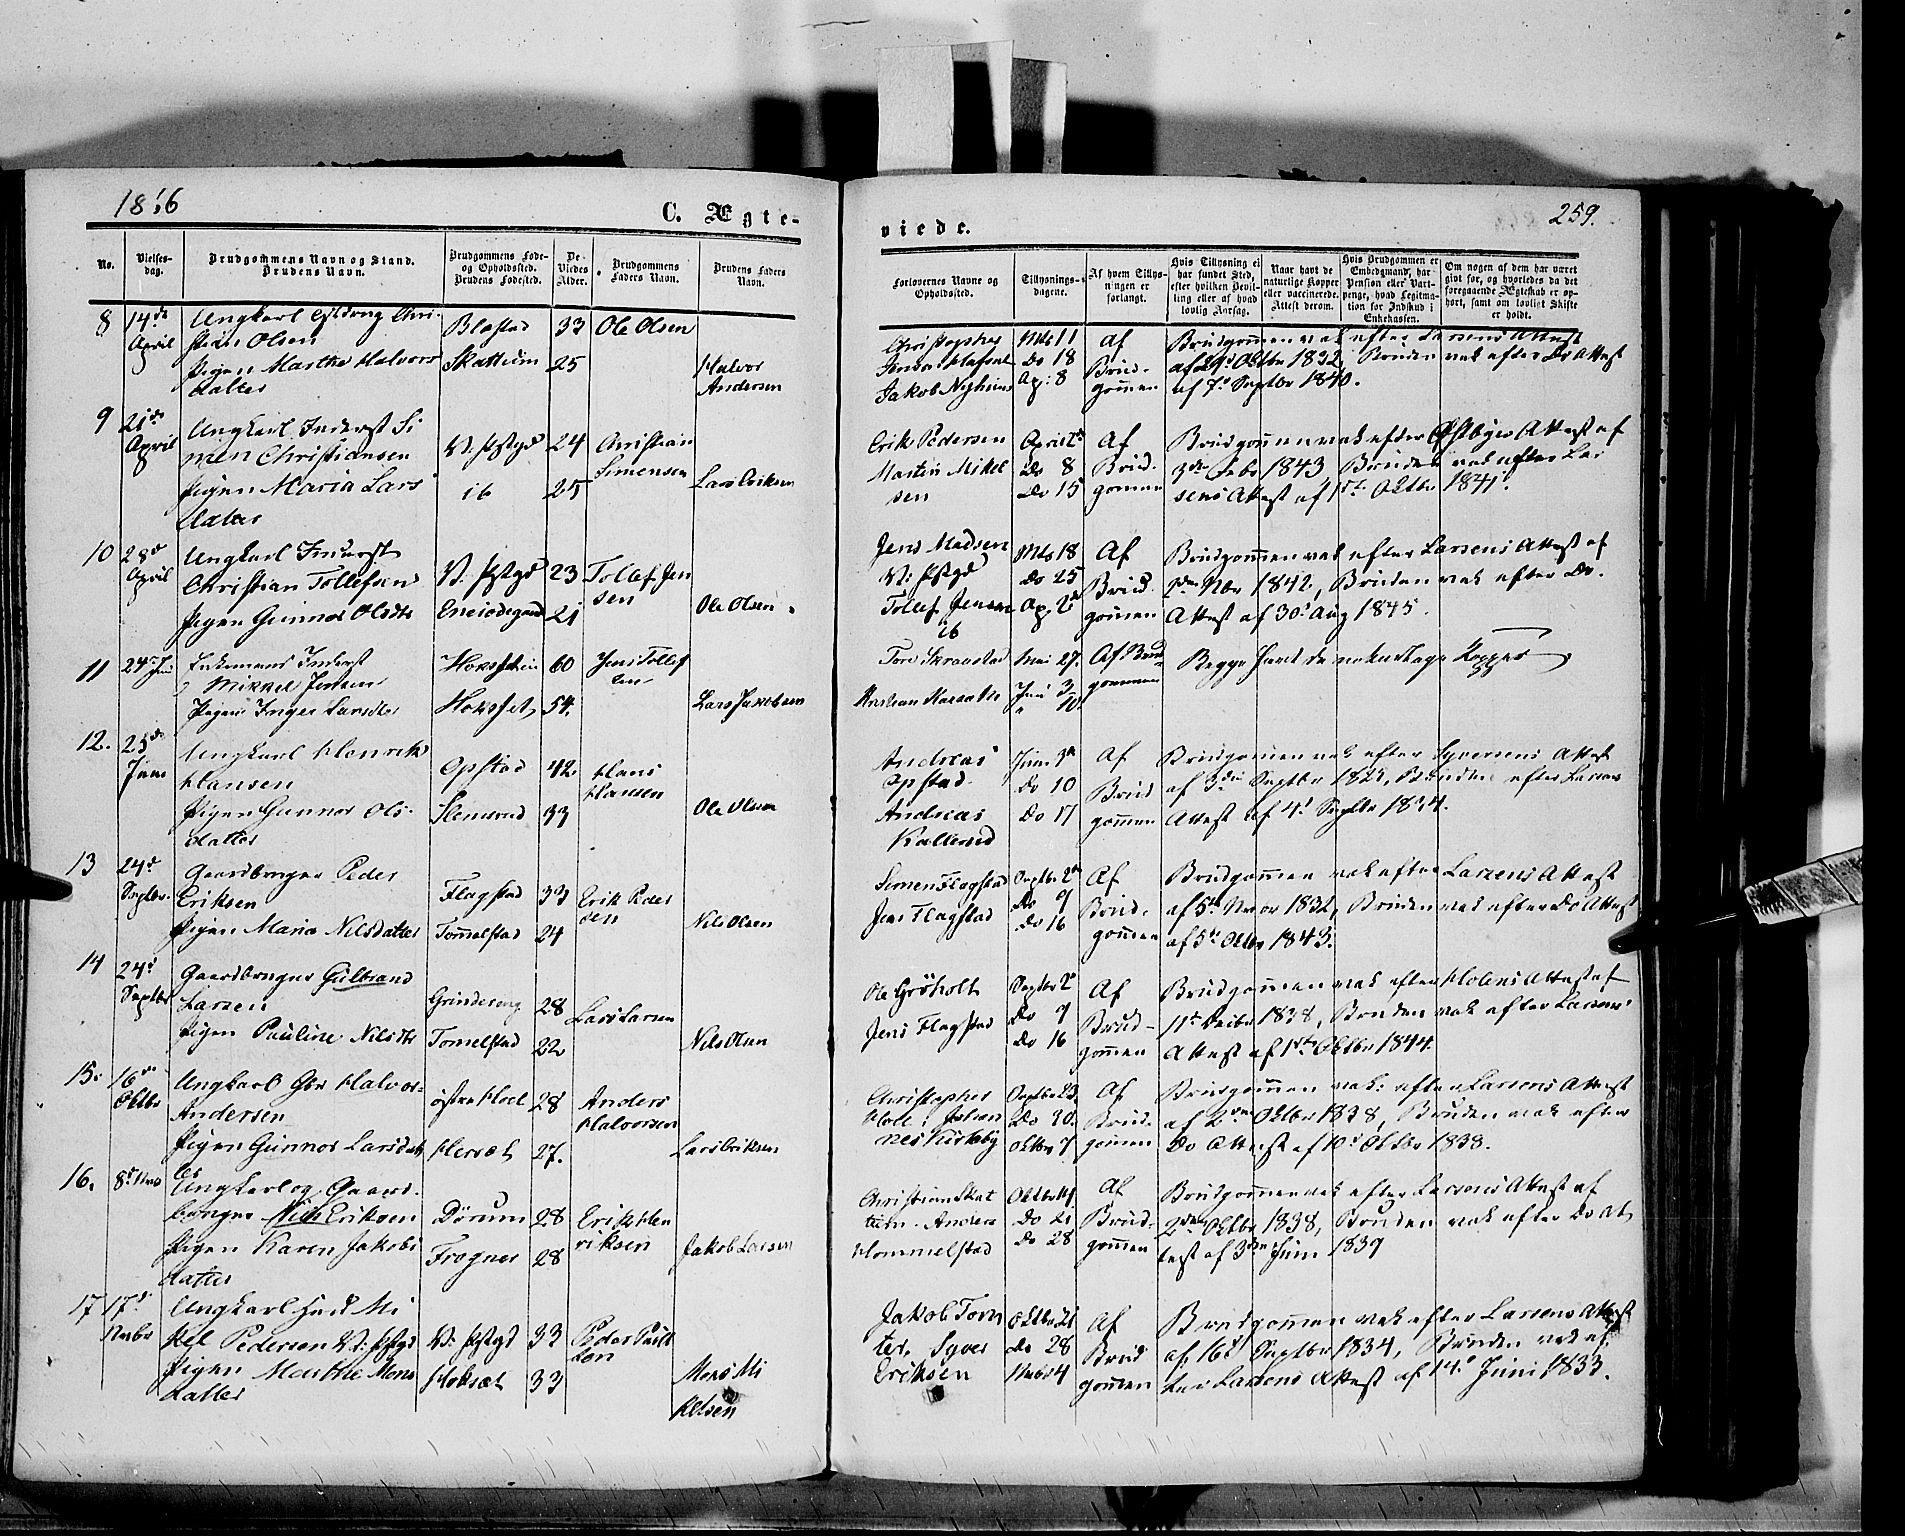 1856
C. Ægte-
viede.
259.
No.
Vielses-
dag.
Brudgommens Navn og Stand.
Brudens Navn.
Brudgommens Føde-
og Opholdssted.
Brudens Fødested.
De
Viedes
Alder.
Brudgommens
Faders Navn.
Brudens Faders
Navn.
Forlovernes Navne og
Opholdssted.
Tillysnings-
dagene.
Af hvem Tillys-
ningen er
forlangt.
Hvis Tillysning ei
har fundet Sted,
efter hvilken Bevil-
ling eller af hvad
lovlig Aarsag.
Naar havt de
naturlige Kopper
eller vaccinerede.
Attest derom.
Hvis Brudgommen er
Embedsmand, har
Pension eller Vart-
penge, hvad Legitima-
tion for Indskud i
Enkekassen.
Om nogen af dem har været
givt før, og hvorledes da det
foregaaende Ægteskab er op-
hørt, samt om lovligt Skifte
er holdt.
8 14de April Ungkarl Christian Olsen
Pigen Marthe Halvorsdatter
Blæstad 33 Ole Olsen
Skattum 25 Halvor Andersen
Mts 11 Do 18 Ap: 8
Af Brudgommen
Brudgommen vak efter Larsens Attest
af 29d Oktbr 1832, Bruden vak efter Do Attest
af 7d Septbr 1840.
9 21de April Ungkarl Inderst Simen Christiansen
Pigen Maria Larsdatter
V: Pstgd 24 Christian Simensen
ib 25 Lars Eriksen
Erik Pedersen
Martin Mikelsen
April 1t Do 8 Do 15
Af Brudgommen
Brudgommen vak efter Østbyes Attest af
3de Febr 1843 Bruden vak efter Larsens Attest af 1ste Oktbr 1841.
10 28d April Ungkarl Inderst
Christian Tollefsen
Pigen Gunnor Olsdtr
V: Pstgd 23 Tollef Jensen
21 Ole Olsen
Jens Madsen
V: Pstgd
Tollef Jensen
ib
Mts 18 Do 25 Ap. 2d
Af Brudgommen
Brudgommen vak efter Larsens Attest af
Nbr 1842, Bruden vak efter Do.
Attest af 30d Aug 1845.
11 24d Juni Enkemand Inderst
Mikkel Jensen
Pigen Inger Larsdtr
60 Jens Tollefsen
Hoksset 54. Lars Jakobsen
Tore Skraastad
Mai 27. Juni 3 " 10
Af Brudgommen
Begge havt de naturlige Kopper
12. 25de Juni Ungkarl Henrik
Hansen
Pigen Gunnor Olsdatter
Opstad 42 Hans Hansen
33 Ole Olsen
Andreas
Opstad
Andreas
Kallerud
Juni 3d Do 10 Do 17
Af Brudgommen
Brudgommen vak efter Syversens Attest
af 3die Septbr 1823, Bruden efter Larsens
Attest af 4d Septbr 1834.
13 24d Septbr. Gaardbruger Peder
Eriksen
Pigen Maria Nilsdatter
Flagstad 33 Erik Pedersen
Tommelstad 24 Nils Olsen
Simen Flagstad
Jens Flagstad
Septbr 2d Do 9 Do 16
Af Brudgommen
Brudgommen vak efter Larsens Attest
af 5te Novbr 1832, Bruden vak efter Do Attest
af 5te Oktbr 1843.
14 24d Septbr Gaardbruger Gulbrand
Larsen
Pigen Pauline Nilsdtr
Grindereng 28 Lars Larsen
Tomelstad 22 Nils Olsen
Ole Grøholt
Jens Flagstad
Septbr 2d Do 9 Do 16
Af Brudgommen
Brudgommen vak efter Holens Attest af
11te Decbr 1838, Bruden vak efter Larsens
Attest af 1ste Oktbr 1844.
15. 16de Oktbr Ungkarl Halvor
Andersen
Pigen Gunnor Larsdatter
østre Hoel 28 Anders Halvorsen
Hersæt 27. Lars Eriksen
Christopher
Hoel, Johannes Kirkeby
Septbr 23 Do 30. Oktbr 7
Af Brudgommen
Brudgommen vak: efter Larsens Attest
af 2den Oktbr 1838, Bruden vak efter
Do Attest af 10d Oktbr 1838.
16. 8d Nov Ungkarl og Gaardbruger Nils Eriksen
Pigen Karen Jakobsdatter
Dørum 28 Erik Henriksen
Frogner 28 Jakob Larsen
Christian Skattum. Anders
Hommelstad
Oktbr 14 Do 21 Do 28
Af Brudgommen
Brudgommen vak efter Larsens Attest af
2den Oktbr 1838, Bruden vak efter Do Attest af 3die Juni 1839
17 17d Novbr Ungkarl Mikkel Pedersen V: Pstgd
Pigen Marthe Monsdatter
V: Pstgd 33 Peder Paulsen
Hoksæt 33 Mons Mikkelsen
Jakob Torn
Syver
Eriksen
Oktbr 21 Do 28 Novbr 4
Af Brudgommen
Brudgommen vak efter Larsens Attest
af 16d Septbr 1834, Bruden vak efter Larsens Attest af 14d Juni 1833.